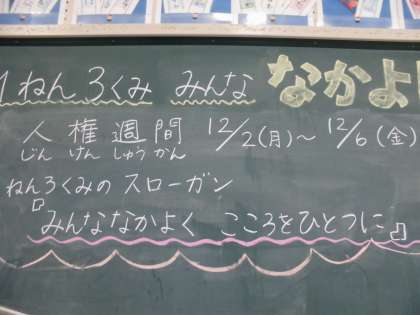 1ねん3くみ みんな なかよ
人権週間 12/2(月)〜12/6(金)
じんけんしゅうかん
ねん3くみのスローガン
『みんななかよく こころをひとつに』